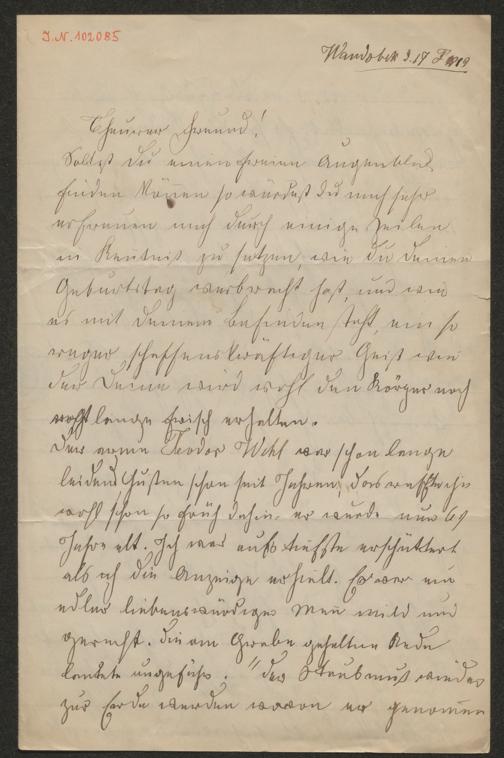 I.N. 102085
Wandsbek 3.17
Theurer Freund!
Solltest Du einen freien Augenblick
finden können so würdest Du mich sehr
erfreuen mich durch einige Zeilen
in Kentniß zu setzen, wie Du Deinen
Geburtstag verbracht hast, und wie
es mit Deinem Befinden steht, ein so
reger schaffenskräftiger Geist wie
der Deine wird wohl den Körper noch
recht lange frisch erhalten.
Der arme Feodor Wehl war schon lange
leidend Husten schon seit Jahren, das raffte ihn
wohl schon so früh dahin er wurde nur 69
Jahre alt. Ich war aufs tiefste erschüttert
als ich die Anzeige erhielt. Er war ein
edler liebenswürdiger Men mild und
gerecht. Die am Grabe gehaltne Rede
lautete ungefähr. "der Staub muß wieder
zur Erde werden wovon er genommen